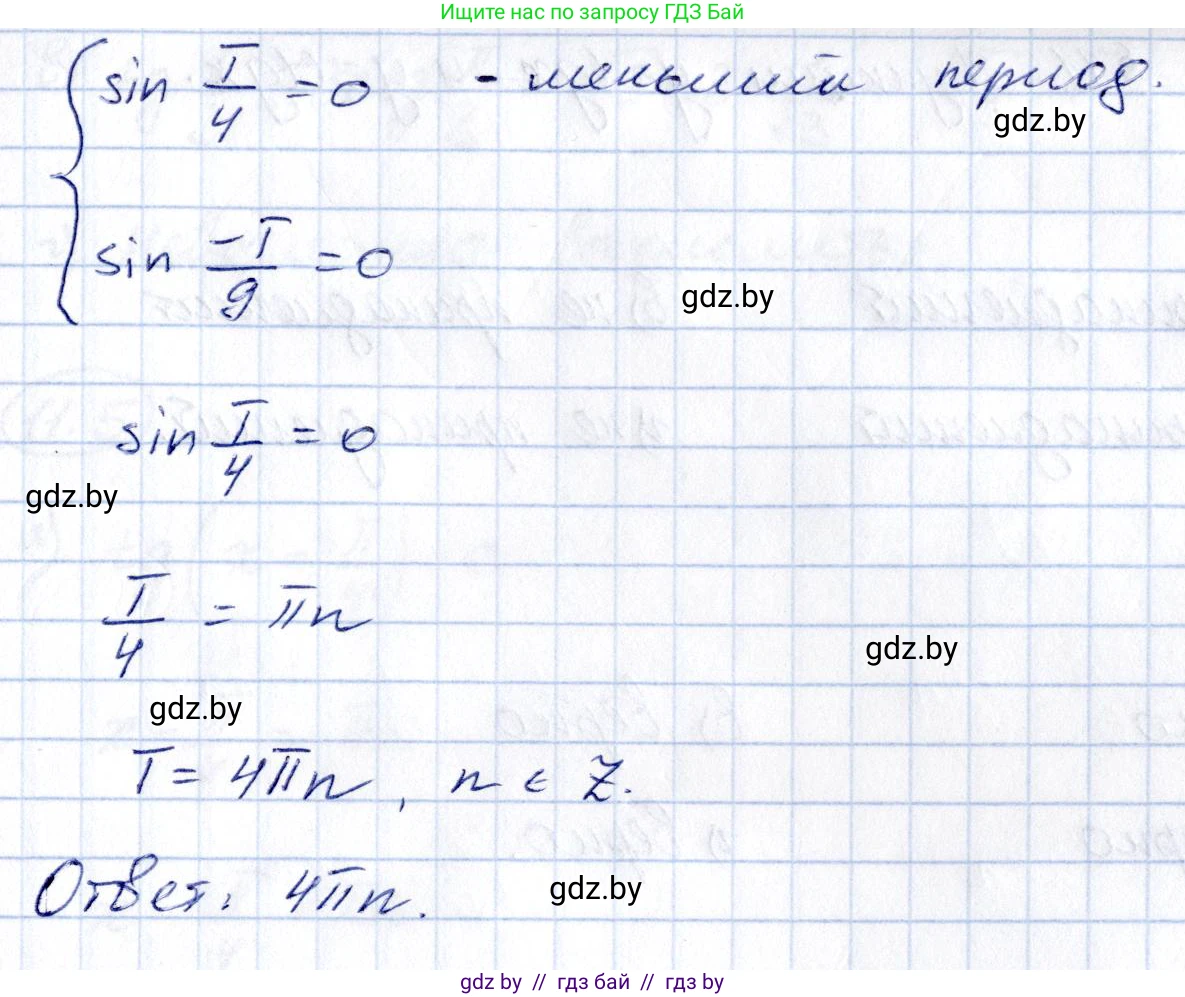 Ищите нас по запросу ГДЗ Бай
sin T/4 = 0 - меньший период.
gdz.by
sin -T/9 = 0
gdz.by
sin T/4 = 0
gdz.by
T/4 = πn
gdz.by
gdz.by
T = 4πn, n ∈ Z.
Ответ: 4πn.
gdz.by
gdz.by // гдз бай // gdz by